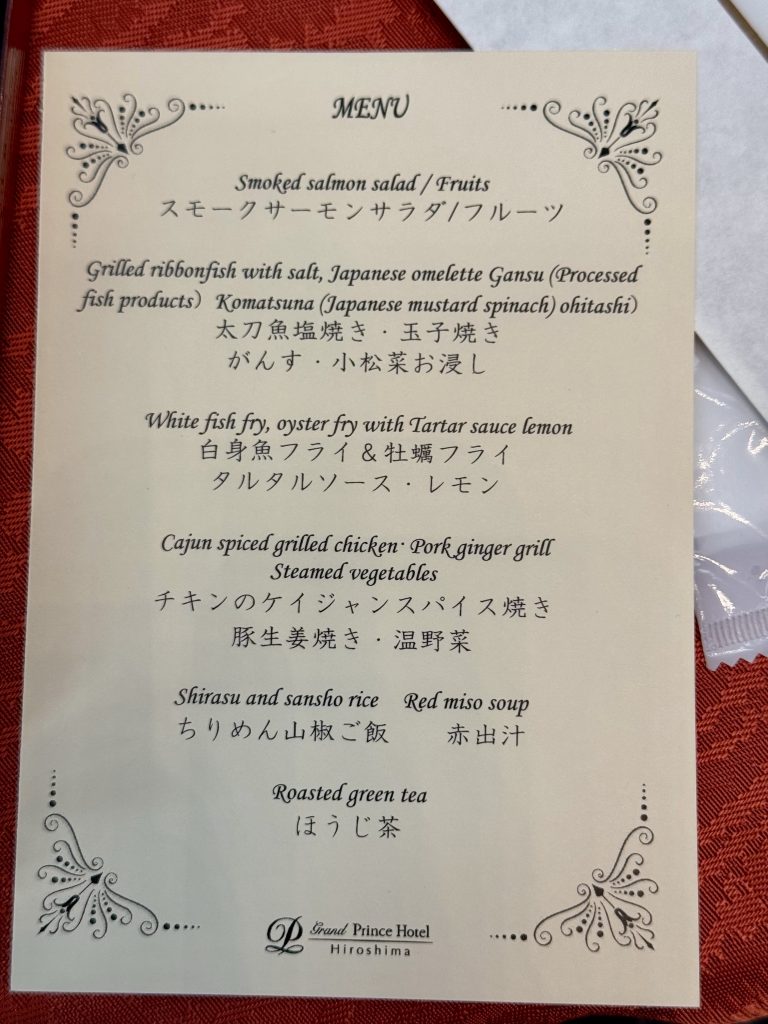 MENU
Smoked salmon salad / Fruits
スモークサーモンサラダ/フルーツ
Grilled ribbonfish with salt, Japanese omelette Gansu (Processed
fish products） Komatsuna (Japanese mustard spinach) ohitashi）
太刀魚塩焼き・玉子焼き
がんす・小松菜お浸し
White fish fry, oyster fry with Tartar sauce lemon
白身魚フライ＆牡蠣フライ
タルタルソース・レモン
Cajun spiced grilled chicken･ Pork ginger grill
Steamed vegetables
チキンのケイジャンスパイス焼き
豚生姜焼き・温野菜
Shirasu and sansho rice　Red miso soup
ちりめん山椒ご飯　　赤出汁
Roasted green tea
ほうじ茶
Grand Prince Hotel
Hiroshima